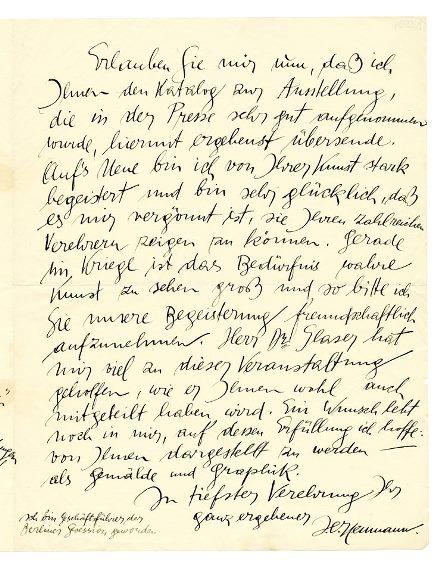 Erlauben Sie mir nun, daß ich
Ihnen den Katalog zur Ausstellung,
die in der Presse sehr gut aufgenommen
wurde, hiermit ergebenst übersende.
Aufs Neue bin ich von Ihrer Kunst stark
begeistert und bin sehr glücklich, daß
es mir vergönnt ist, sie Ihren zahlreichen
Verehrern zeigen zu können. Gerade
im Kriege ist das Bedürfnis wahre
Kunst zu sehen groß und so bitte ich
Sie unsere Begeisterung freundschaftlich
aufzunehmen. Herr Dr. Glaser hat
mir viel an dieser Veranstaltung
geholfen, wie er Ihnen wohl auch
mitgeteilt haben wird. Ein Wunsch lebt
noch in mir, auf dessen Erfüllung ich hoffe:
von Ihnen dargestellt zu werden —
als Gemälde und Graphik.
In tiefster Verehrung Ihr
ganz ergebener
J.B. Neumann.
Ich bin Geschäftsführer der
Berliner Secession geworden.